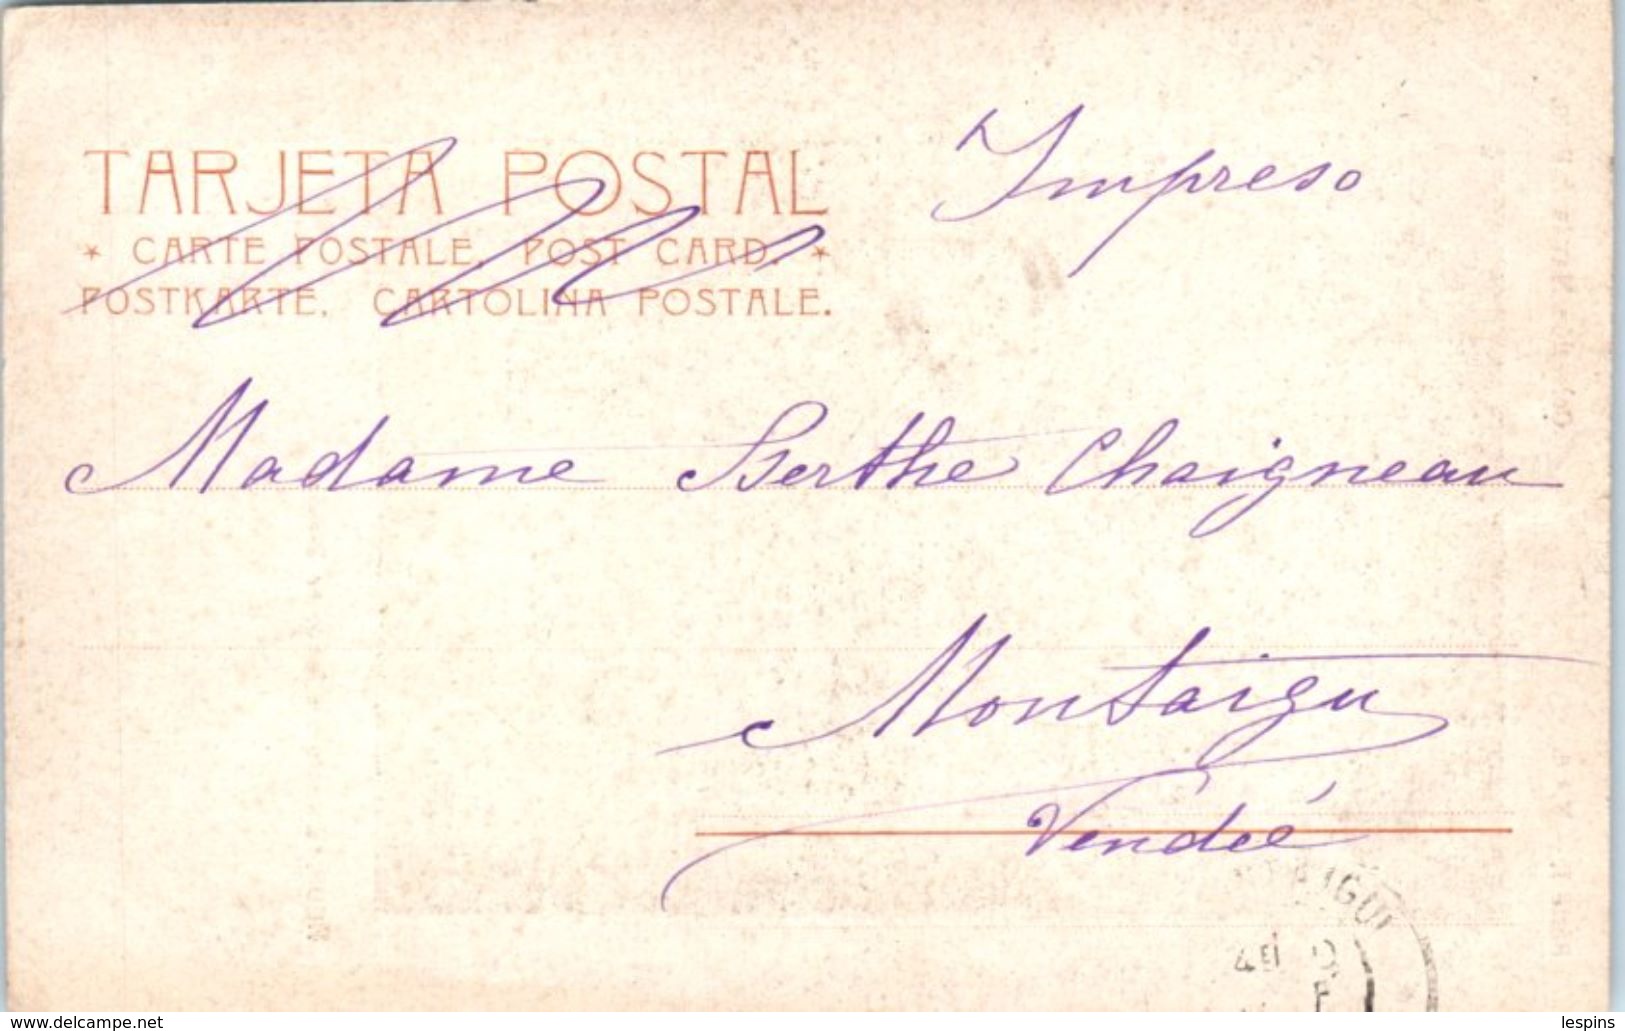 TARJETA POSTAL
* CARTE POSTALE. POST CARD. *
POSTKARTE. CARTOLINA POSTALE.
Impreso
Madame Berthe Chaigneau
Montaigu
Vendée
4E
© www.delcampe.net
lespins